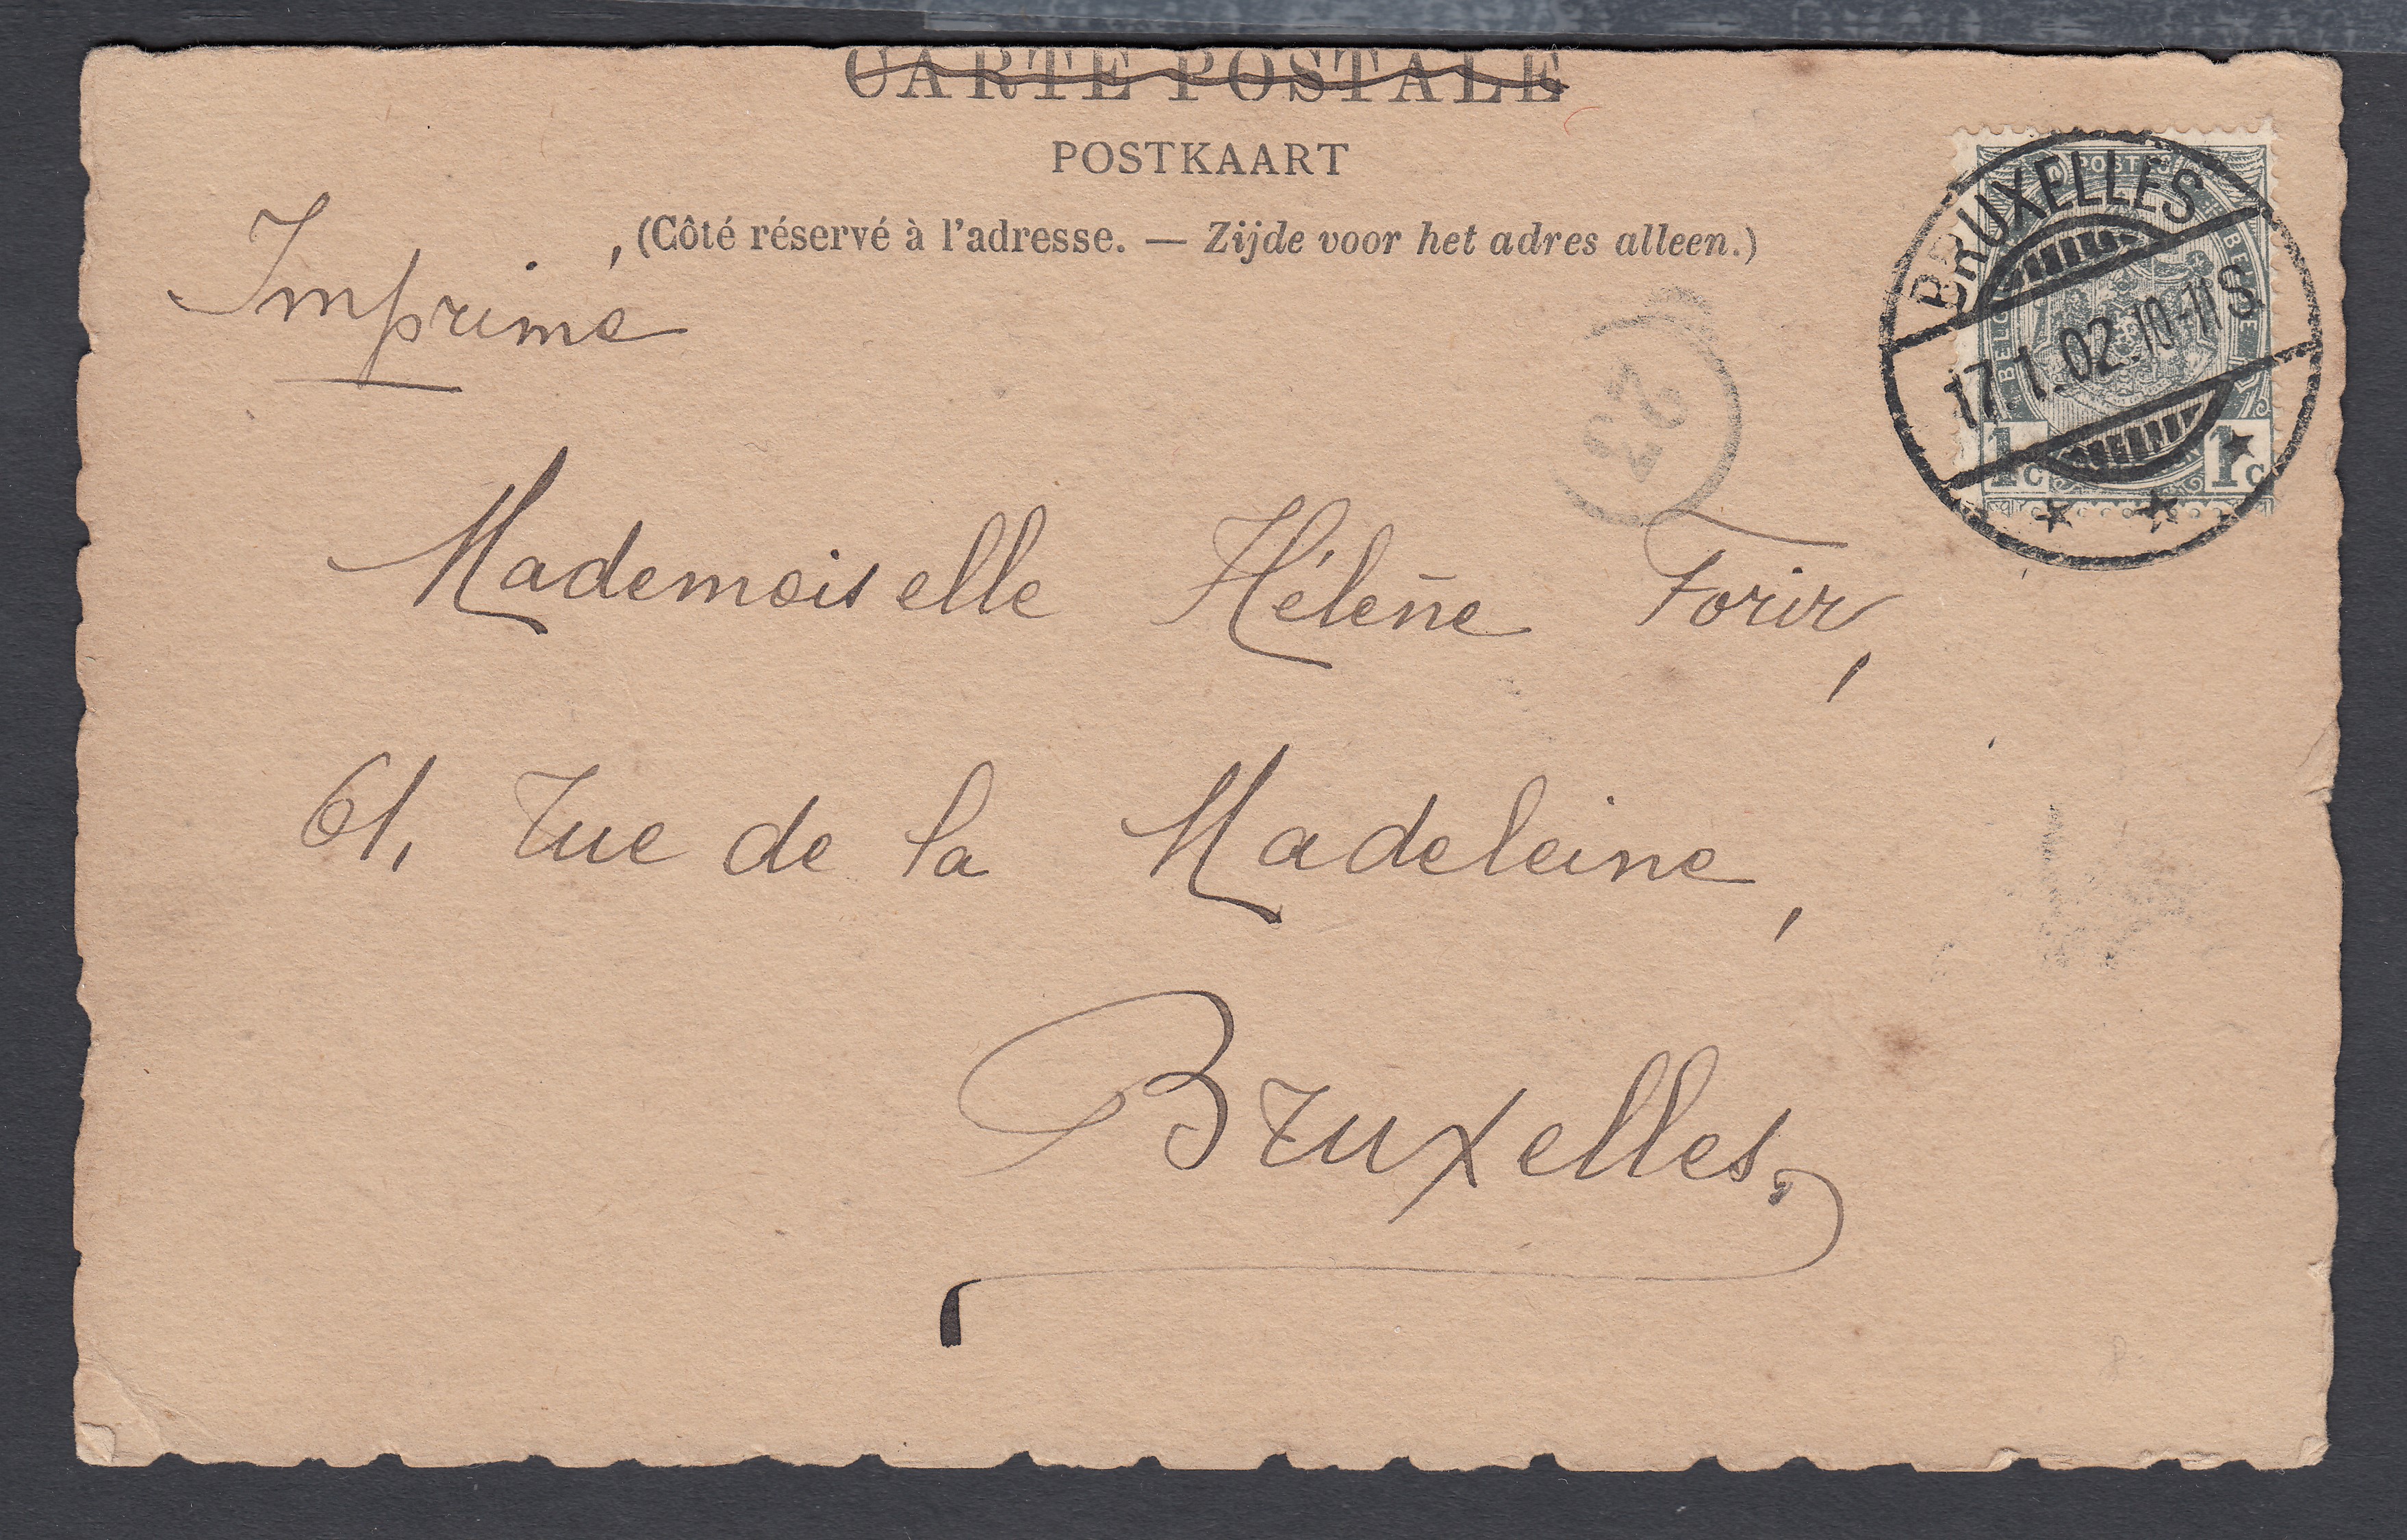 CARTE POSTALE
POSTKAART
(Côté réservé à l'adresse. — Zijde voor het adres alleen.)
Imprimé
BRUXELLES
17.1.02.10-11S
POSTES
BELGIQUE
BELGIE
1c 1c
Mademoiselle Hélène Forir,
61, rue de la Madeleine,
Bruxelles.